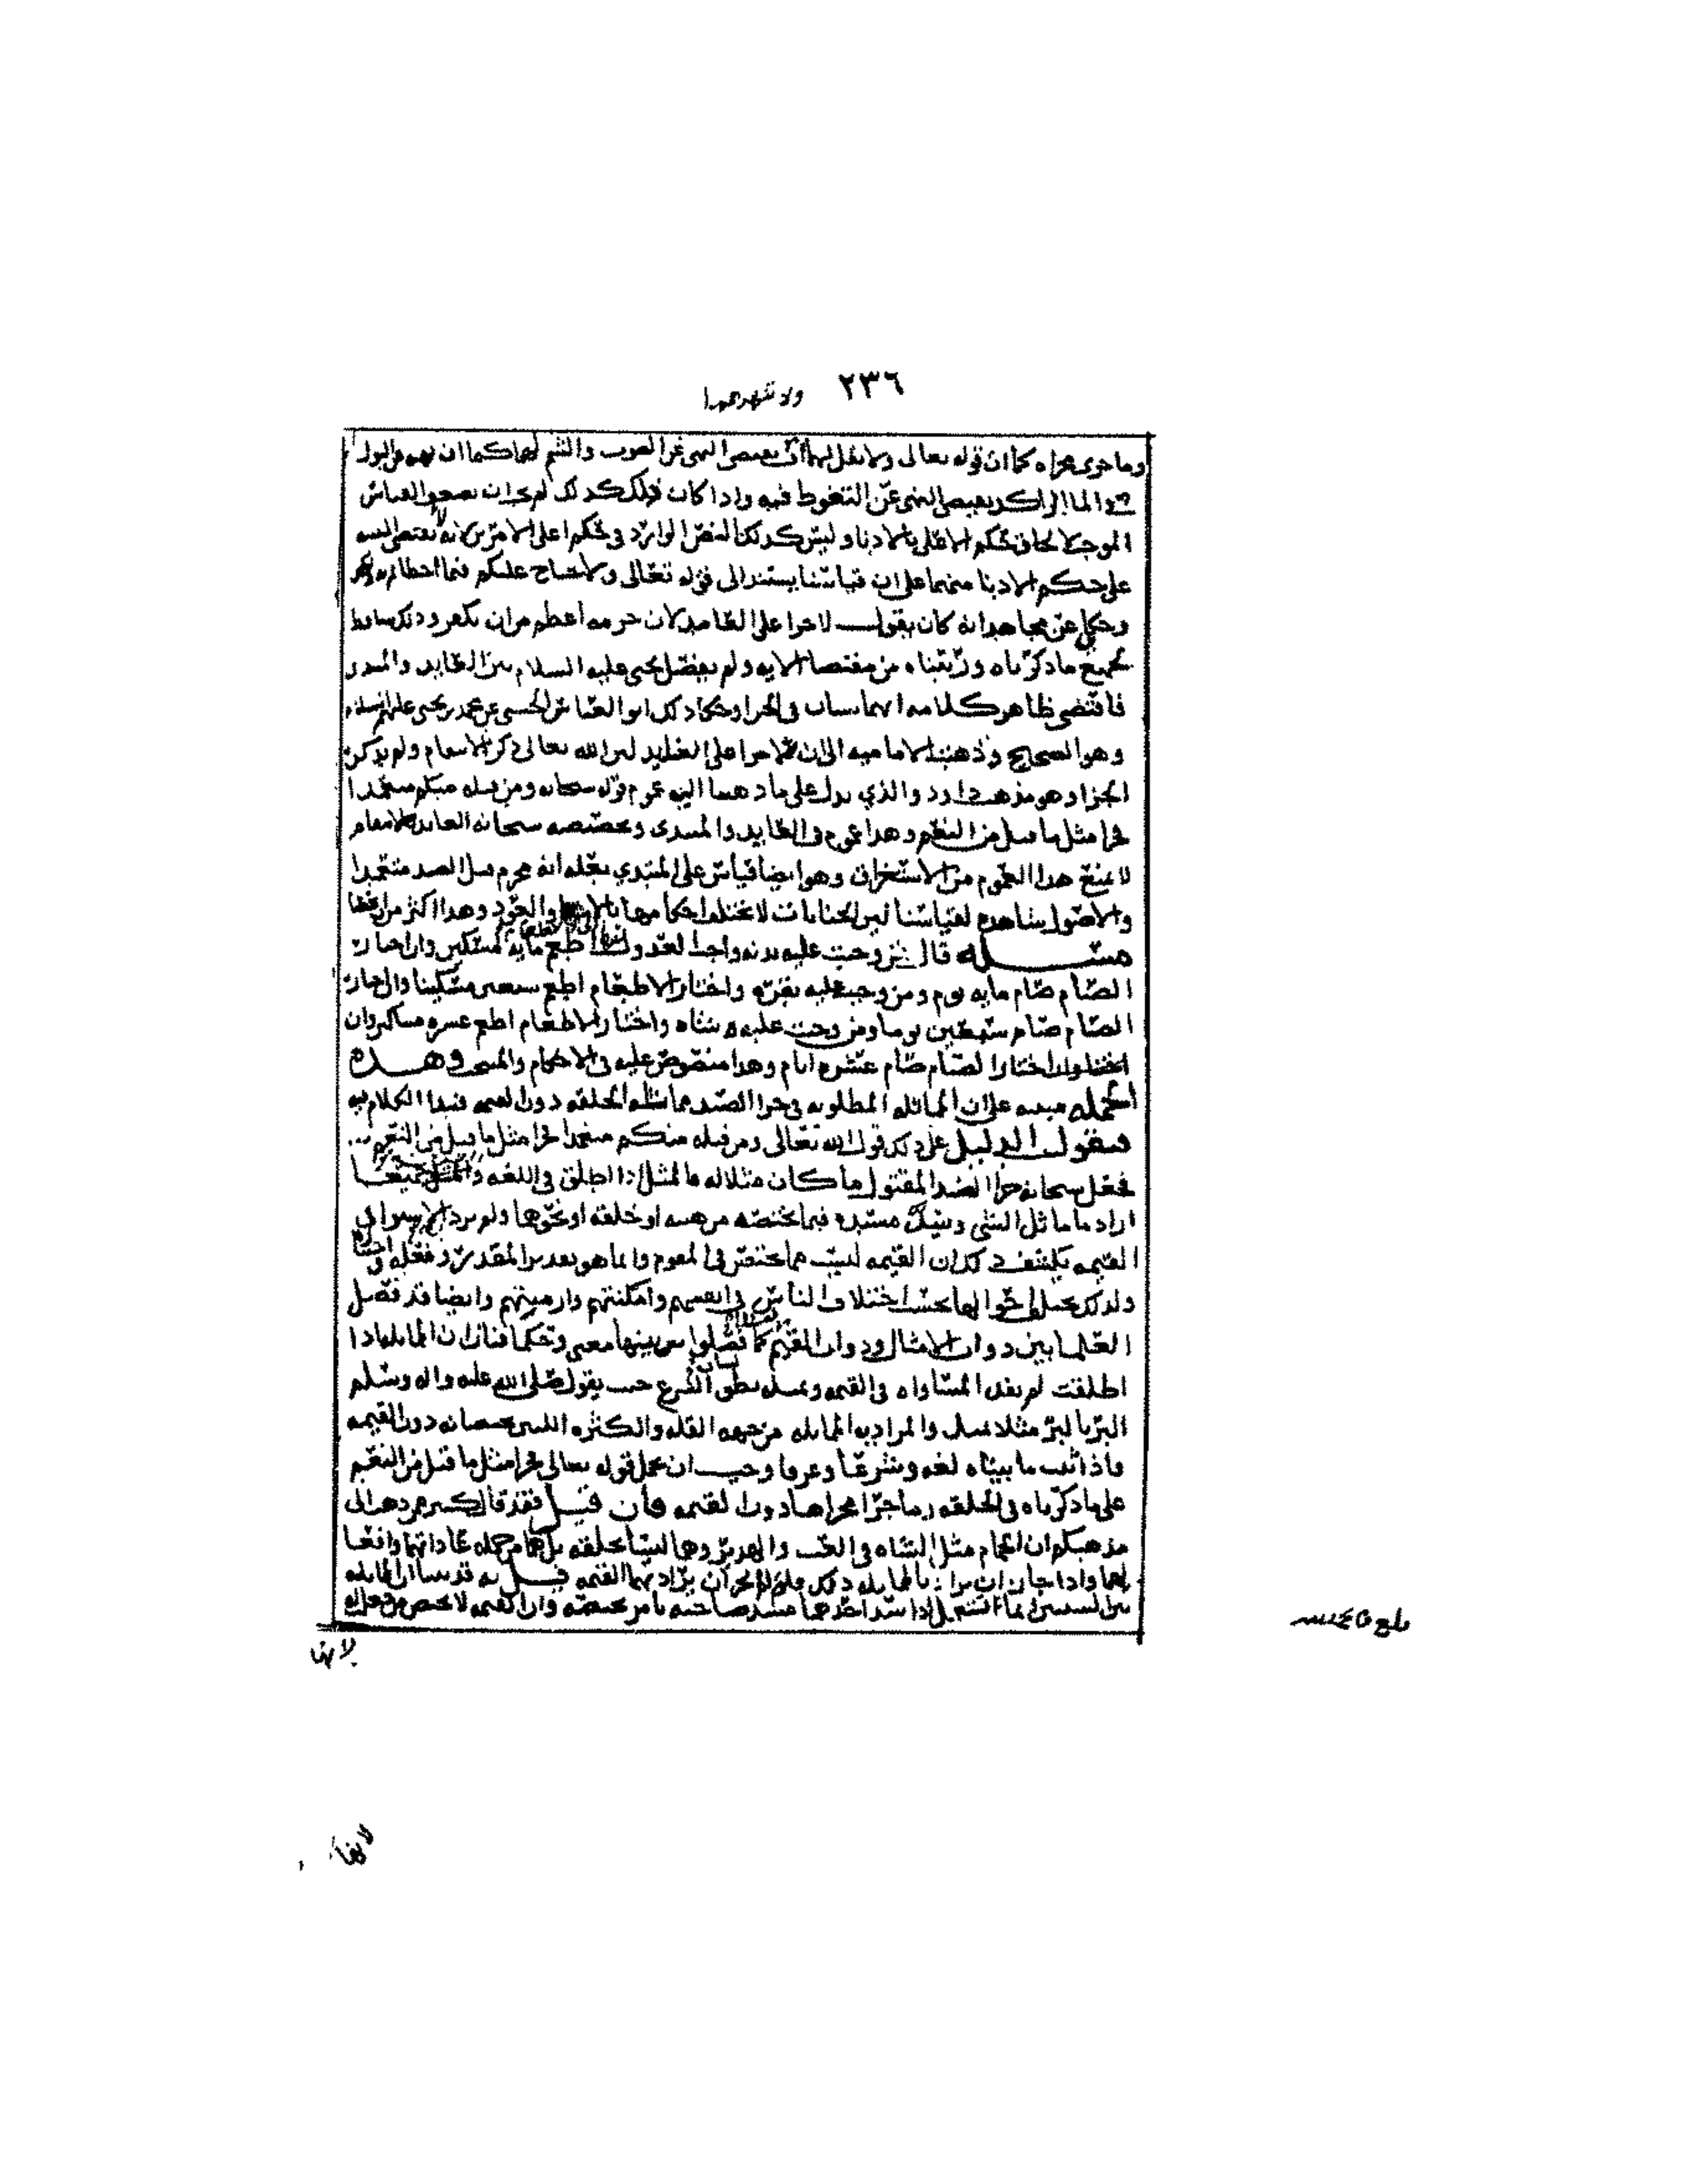 ٢٣٦
وما جرى مجراه كما ان قوله تعالى ولا تقل لهما أف يقتضي النهي عن الضرب والشتم لهما كما ان نهيه عن البول
في الماء الراكد يقتضي النهي عن التغوط فيه واذا كان ذلك كذلك لم يجز ان القياس
الموجب لالحاق حكم الاعلى بالادنا وليس كذلك النص الوارد في حكم اعلى الامرين لانه يقتضي التنبيه
على حكم الادنا منهما على ان قياسنا يستند الى قوله تعالى ولا جناح عليكم فيما اخطاتم به
وحكي عن مجاهد انه كان يقول لا جزا على العامد لان جرمه اعظم من ان يكفر وذلك ساقط
بجميع ما ذكرناه وبيناه من مقتضا الايه ولم يفصل يحيى عليه السلام بين العايد والمبتدي
فاقتضى ظاهر كلامه انهما سيان في الجزا وحكا ذلك ابو العباس الحسني عن محمد بن يحيى عليهم السلام
وهو الصحيح وذهبت الاماميه الى ان لا جزا على العايد لان الله تعالى ذكر الانتقام ولم يذكر
الجزا وهو مذهب داود والذي يدل على ما ذهبنا اليه عموم قوله سبحانه ومن قتله منكم متعمدا
فجزا مثل ما قتل من النعم وهذا عموم في العايد والمبتدي وتخصيصه سبحانه العايد بالانتقام
لا يمنع هذا العموم من الاستغراق وهو ايضا قياس على المبتدي بعله انه محرم قتل الصيد متعمدا
والاصول شاهده لقياسنا لان الجنايات لا تختلف احكامها بالابتدا والعود وهذا اكثر من
مسئله قال من وجبت عليه بدنه واحب العدول اطعم مايه مسكين وان احب
الصيام صام مايه يوم ومن وجب عليه بقره واختار الاطعام اطعم سبعين مسكينا وان اختار
الصيام صام سبعين يوما ومن وجبت عليه شاه واختار الاطعام اطعم عشره مساكين وان
اختار الصيام صام عشره ايام وهذا منصوص عليه في الاحكام والمنتخب وهذه
الجمله مبنيه على ان المماثله المطلوبه في جزا الصيد مماثله الخلقه دون القيمه فنبدا الكلام فيه
فنقول الدليل على ذلك قول الله تعالى ومن قتله منكم متعمدا فجزا مثل ما قتل من النعم
فجعل سبحانه جزا الصيد المقتول ما كان مثلا له والمثل اذا اطلق في اللغه
اراد ما ماثل الشي وسد مسده فيما يختصه من هيئه او خلقه او نحوهما ولم يرد
القيمه يكشف ذلك ان القيمه ليست مما يختص المقوم وانما هو تقدير المقدر وفعله
ولذلك تختلف احوالها بحسب اختلاف الناس في انفسهم وامكنتهم وازمنتهم وايضا قد فصل
العلما بين ذوات الامثال وذوات القيم كما فصلوا بينهما معنى وحكما فبان ان المماثله اذا
اطلقت لم يفد المساواه في القيمه وبمثله نطق الشرع حيث يقول صلى الله عليه واله وسلم
البر بالبر مثلا بمثل والمراد به المماثله من جهه القله والكثره اللتين تخصانه دون القيمه
فاذا ثبت ما بيناه لغه وشرعا وعرفا وجب ان يحمل قوله تعالى فجزا مثل ما قتل من النعم
على ما ذكرناه في الخلقه وما جرا مجراها دون القيمه فان قيل فقد قال كثير ممن ذهب الى
مذهبكم ان الحمام مثل الشاه في العب والهدير وهما ليستا بخلقه بل هما من جمله عاداتها وافعالها
واذا جاز ان يراد بالمماثله ذلك جاز ان يراد بها القيمه قيل له قد بينا ان المماثله
بين الشيئين انما تستعمل اذا سد احدهما مسد صاحبه بامر يختصه وان القيمه لا تختص
لانها
لانها